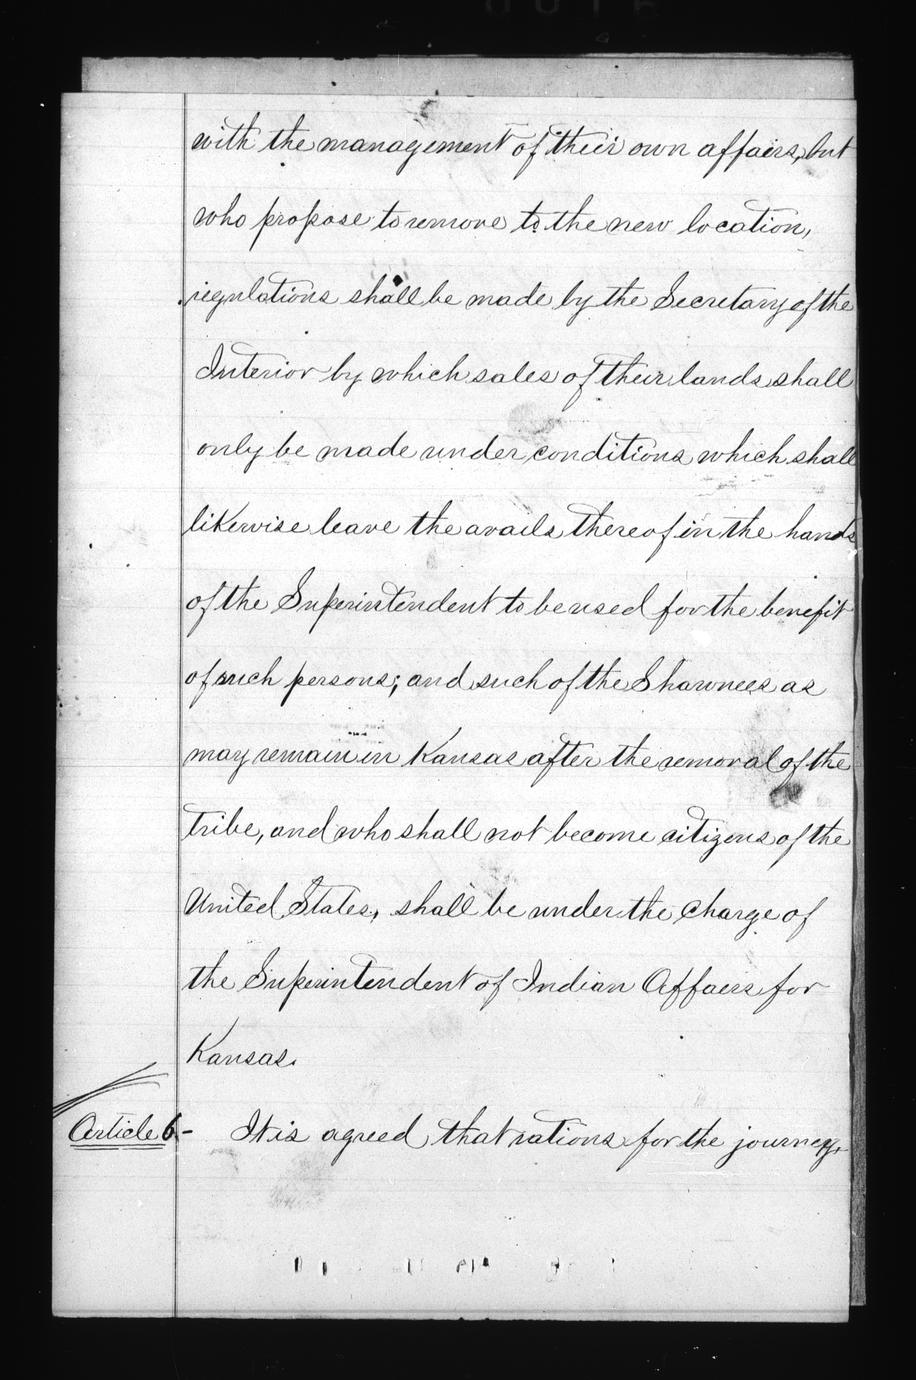 with the management of their own affairs, but
who propose to remove to the new location,
regulations shall be made by the Secretary of the
Interior by which sales of their lands shall
only be made under conditions which shall
likewise leave the avails thereof in the hands
of the Superintendent to be used for the benefit
of such persons; and such of the Shawnees as
may remain in Kansas after the removal of the
tribe, and who shall not become citizens of the
United States, shall be under the charge of
the Superintendent of Indian Affairs for
Kansas.
Article 6- It is agreed that rations for the journey,